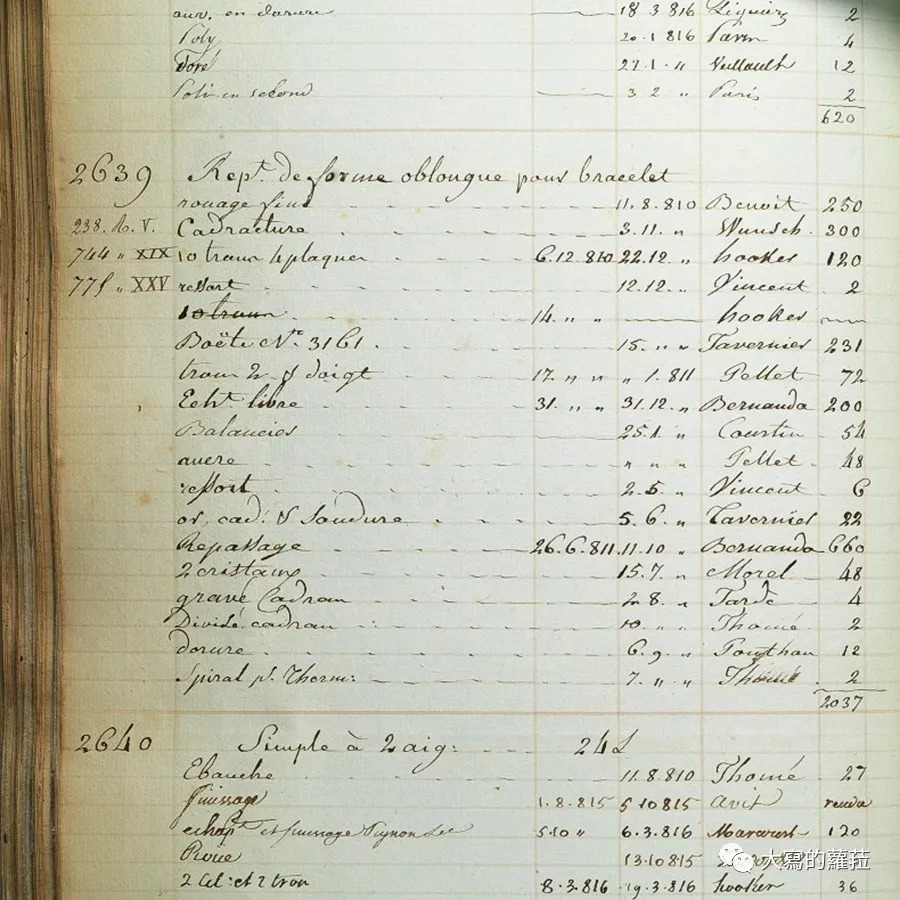 aux. en dorure 18 3.816 2
Poly 20.1 816 4
Doré 27.1. " 12
Poli en second 3 2 " Paris 2
620
2639 Rept. de forme oblongue pour bracelet
rouage fini 11.8.810 Benoit 250
238. R. V. Cadracture 3.11. " Wunsch 300
744 " XIX 10 trous 4 plaques 6.12 810 22.12. " hooker 120
775 " XXV ressort 12.12. " Vincent 2
10 trous 14. " " hooker
Boëte N.° 3161. 15. " " Tavernier 231
trous 2 & doigt 17. " " " 1.811 Pellet 72
Echt. libre 31. " " 31.12. " Bernanda 200
Balancier 25.1. " Courtin 54
" " " Pellet 48
ressort 2.5. " Vincent 6
or, cad: & Soudure 5.6. " Tavernier 22
Repassage 26.6.811. 11.10 " Bernanda 660
2 cristaux 15.7. " Morel 48
gravé Cadran 2 8. " Tarde 4
Divisé cadran 10. " " Thomé 2
dorure 6.9. " 12
Spiral pr. Therm: 7. " " Thomé 2
2037
2640 Simple à 2 aig: 24 L
Ebauche 11.8.810 Thomé 27
finissage 1.8.815 5 10 815 avit rendu
echapt et finissage Pignon 5 10 " 6.3.816 120
Roue 13.10 815
2 Cel: et 2 trou 8.3.816 19.3.816 hooker 36
大寫的蘿菈